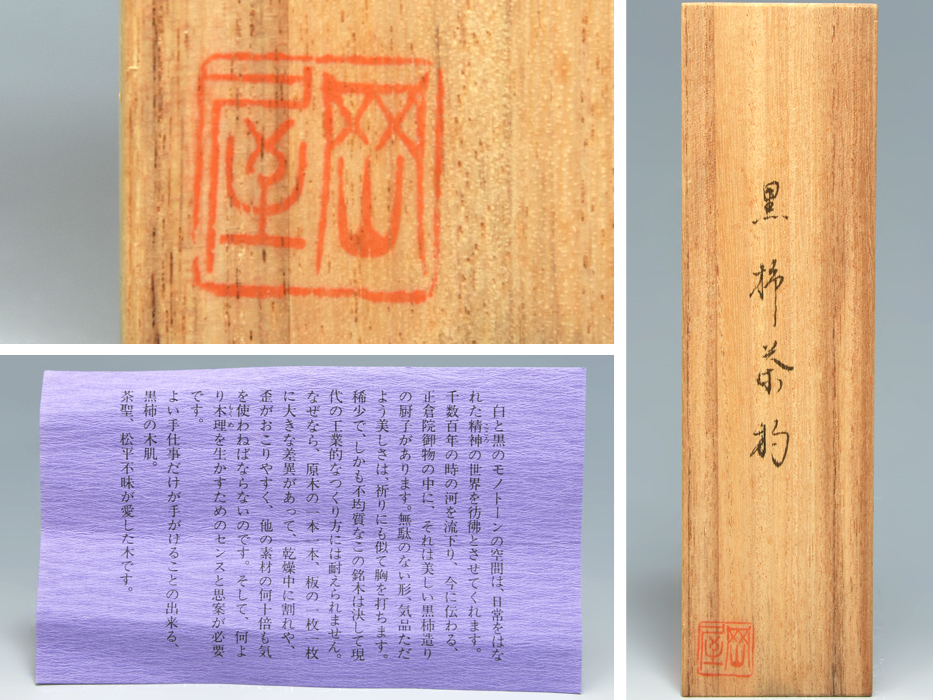 岡屋
白と黒のモノトーンの空間は、日常をはな
れた精神の世界を彷彿とさせてくれます。
千数百年の時の河を流下り、今に伝わる、
正倉院御物の中に、それは美しい黒柿造り
の厨子があります。無駄のない形、気品ただ
よう美しさは、祈りにも似て胸を打ちます。
稀少で、しかも不均質なこの銘木は決して現
代の工業的なつくり方には耐えられません。
なぜなら、原木の一本一本、板の一枚一枚
に大きな差異があって、乾燥中に割れや、
歪がおこりやすく、他の素材の何十倍も気
を使わねばならないのです。そして、何よ
り木理を生かすためのセンスと思案が必要
です。
よい手仕事だけが手がけることの出来る、
黒柿の木肌。
茶聖、松平不昧が愛した木です。
黒柿茶杓
岡屋